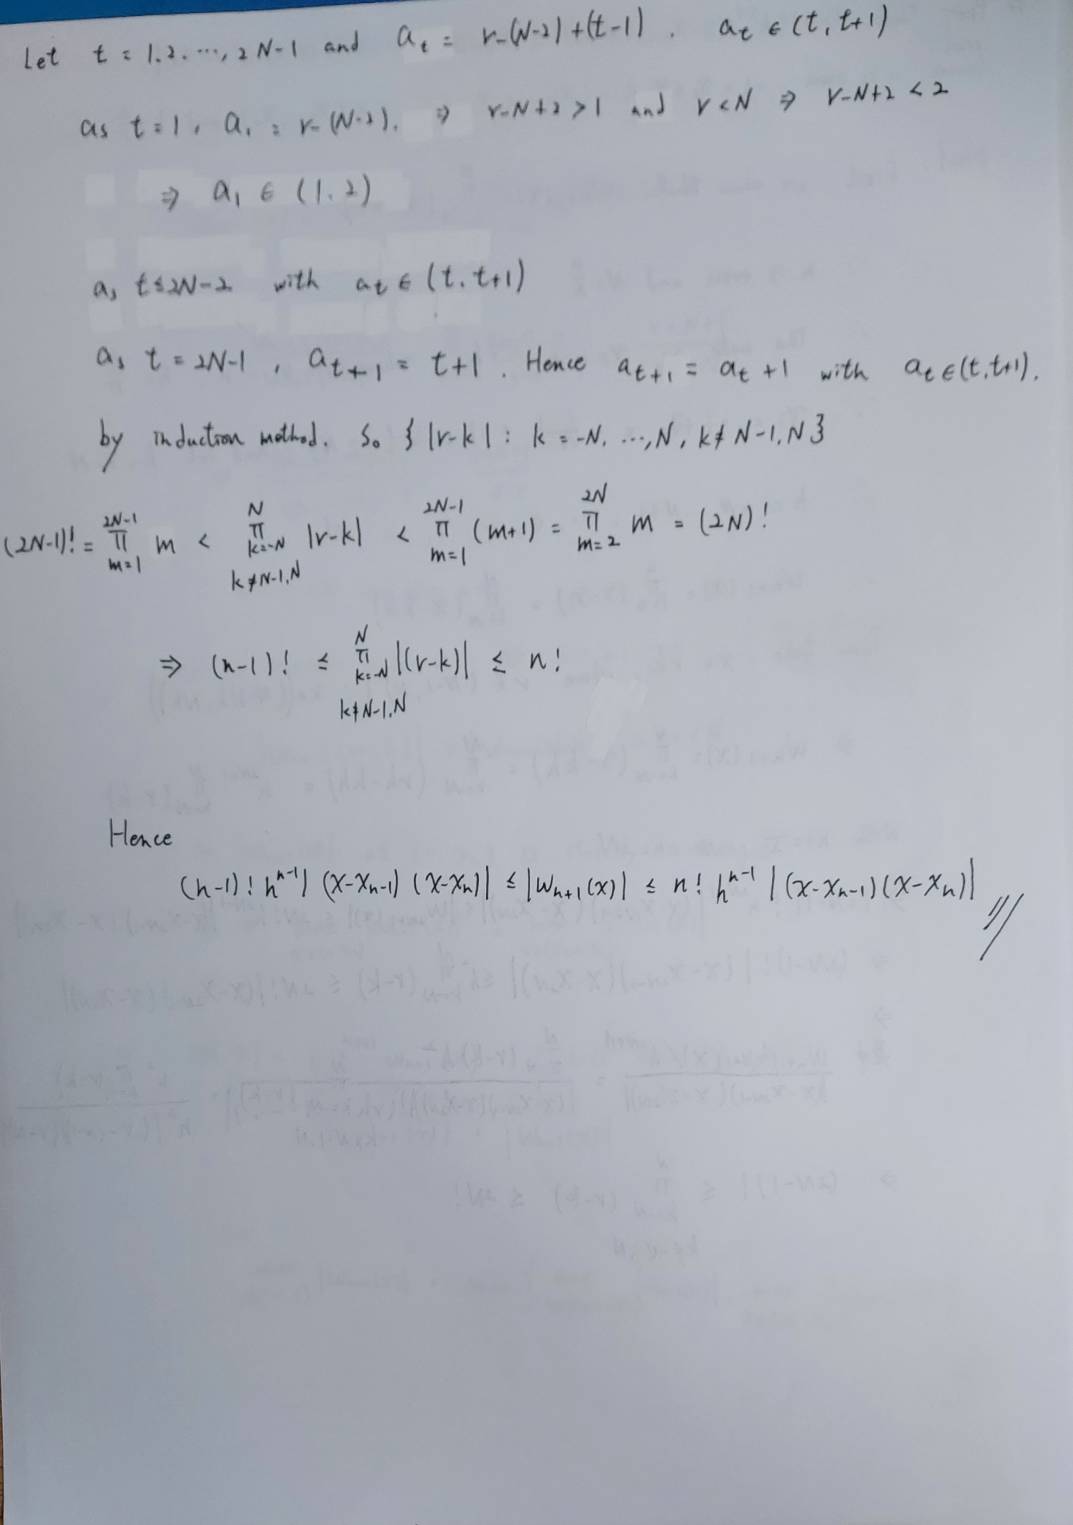 Let t = 1.2. ..., 2N-1 and a_t = r-(N-2)+(t-1). a_t ∈ (t, t+1)
as t=1, a_1 = r-(N-2). ⇒ r-N+2 > 1 and r < N ⇒ r-N+2 < 2
⇒ a_1 ∈ (1.2)
as t≤2N-2 with a_t ∈ (t. t+1)
as t = 2N-1, a_{t+1} = t+1. Hence a_{t+1} = a_t + 1 with a_t ∈ (t.t+1).
by induction method. So { |r-k| : k = -N. ..., N, k≠N-1,N }
(2N-1)! = ∏_{m=1}^{2N-1} m < ∏_{k=-N, k≠N-1,N}^{N} |r-k| < ∏_{m=1}^{2N-1} (m+1) = ∏_{m=2}^{2N} m = (2N)!
⇒ (n-1)! ≤ ∏_{k=-N, k≠N-1,N}^{N} |(r-k)| ≤ n!
Hence
(n-1)! h^{n-1} |(x-x_{n-1})(x-x_n)| ≤ |W_{n+1}(x)| ≤ n! h^{n-1} |(x-x_{n-1})(x-x_n)|